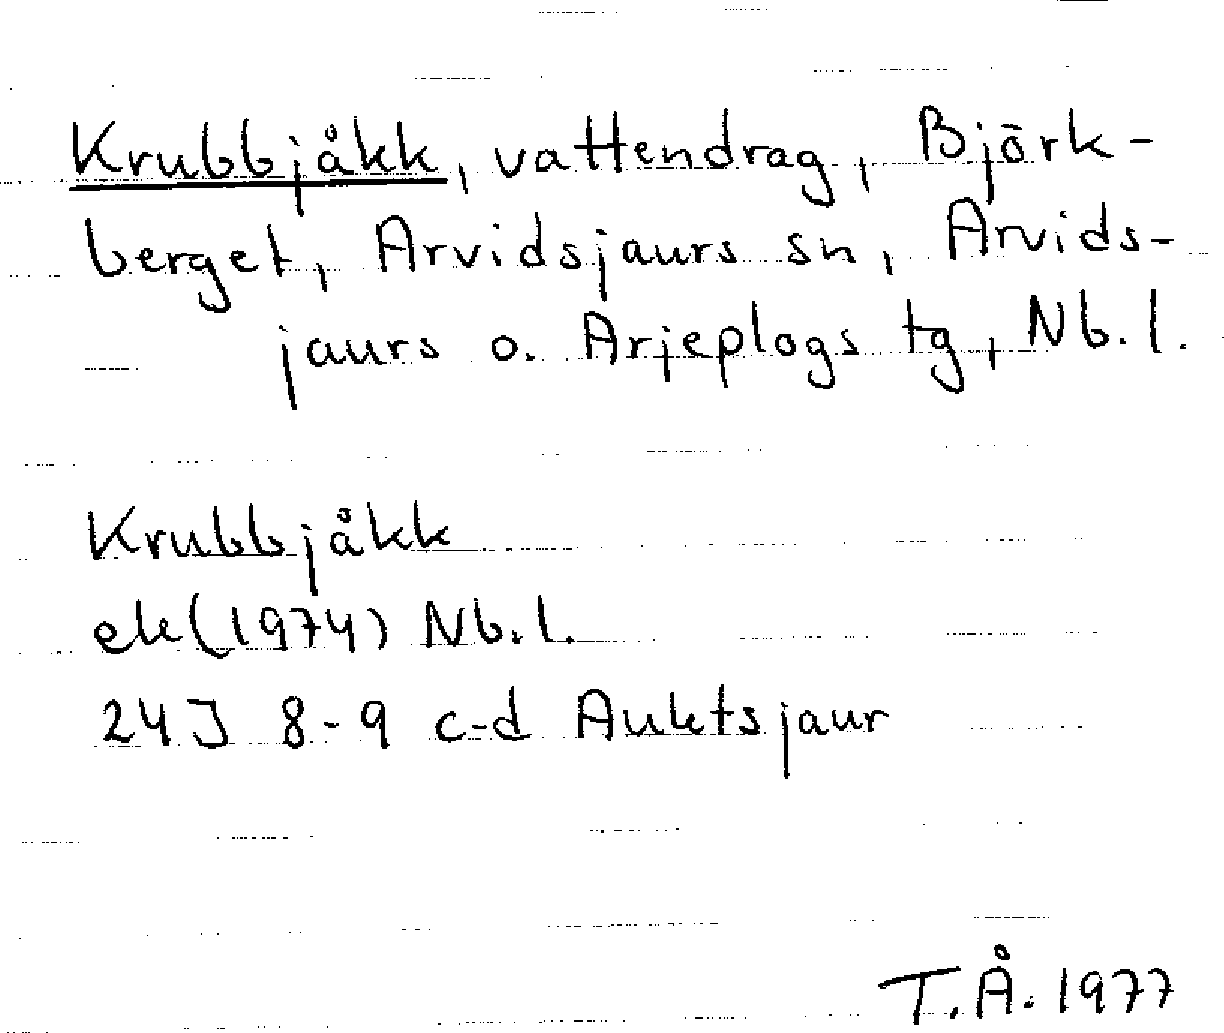 Krubbjåkk, vattendrag, Björk-
berget, Arvidsjaurs sn, Arvids-
jaurs o. Arjeplogs tg, Nb.l.
Krubbjåkk
ek (1974) Nb.l.
24J 8-9 c-d Auktsjaur
T.Å. 1977